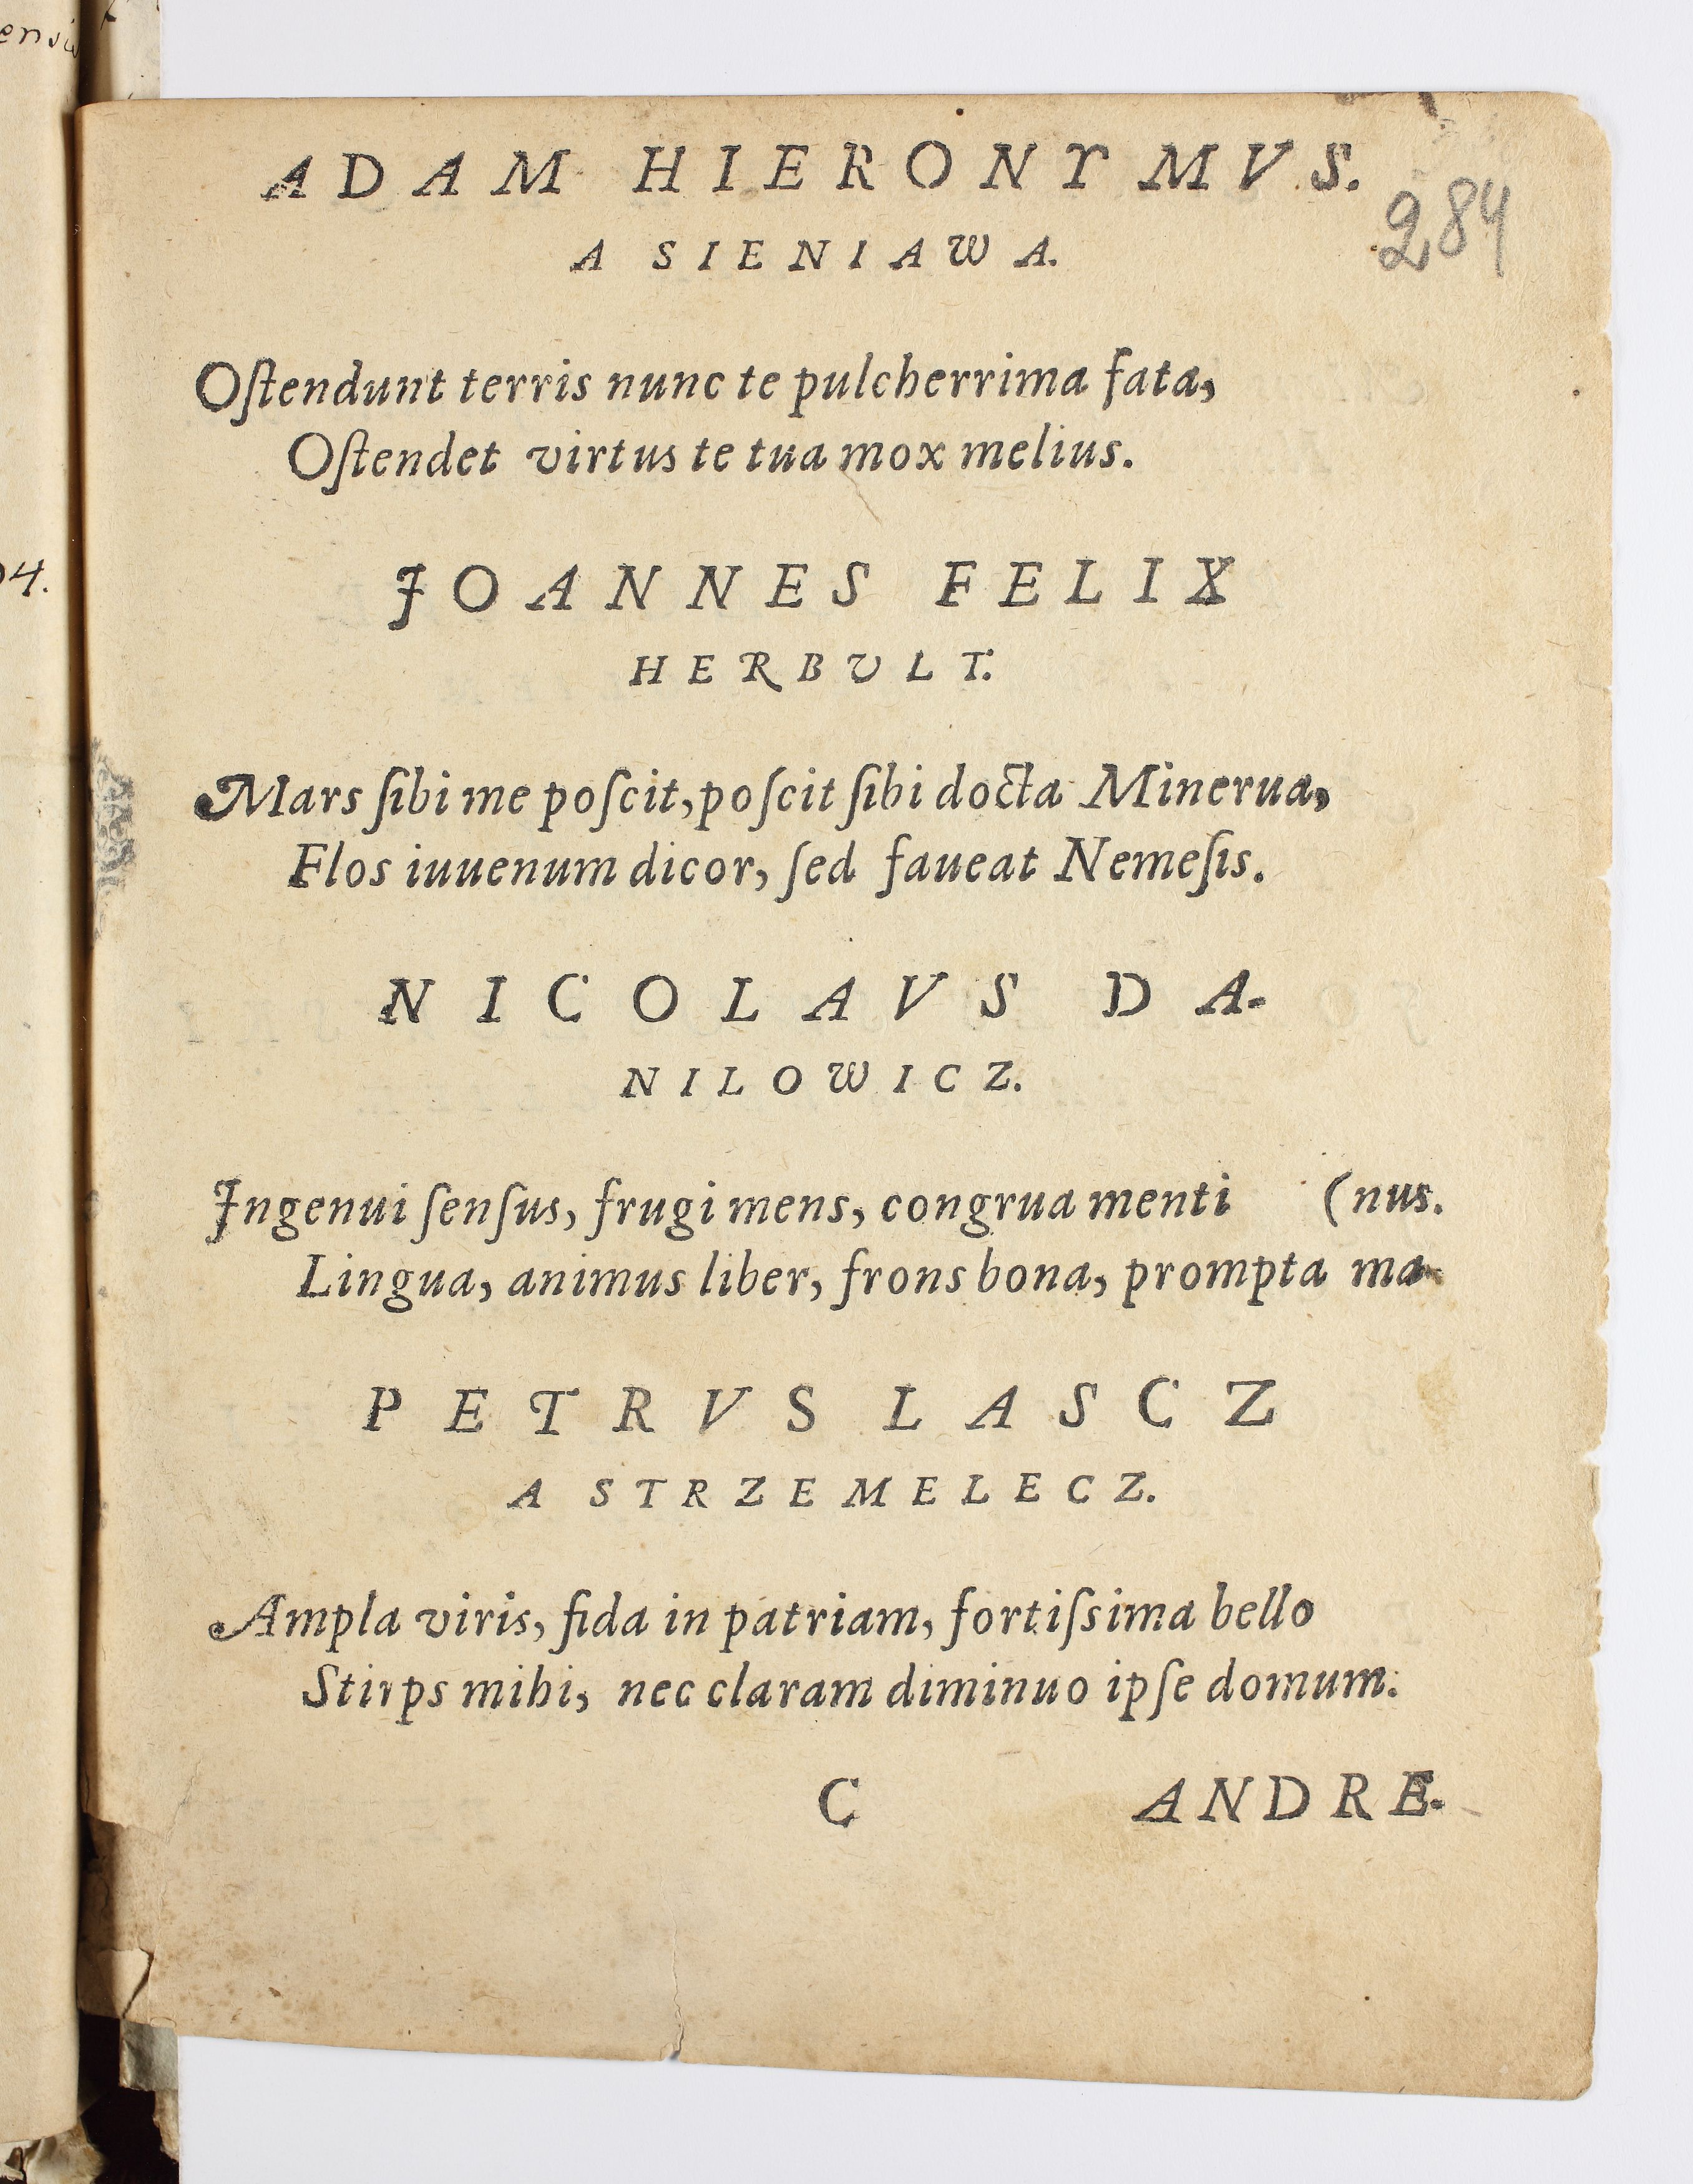 ADAM HIERONYMVS.
284
A SIENIAWA.
Oſtendunt terris nunc te pulcherrima fata,
Oſtendet virtus te tua mox melius.
JOANNES FELIX
HERBVLT.
Mars ſibi me poſcit, poſcit ſibi docta Minerua,
Flos iuuenum dicor, ſed faueat Nemeſis.
NICOLAVS DA-
NILOWICZ.
Jngenui ſenſus, frugi mens, congrua menti (nus.
Lingua, animus liber, frons bona, prompta ma-
PETRVS LASCZ
A STRZEMELECZ.
Ampla viris, fida in patriam, fortiſsima bello
Stirps mihi, nec claram diminuo ipſe domum.
C ANDRE-
04.